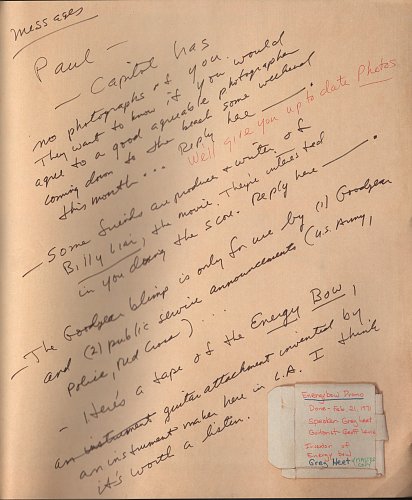 Messages
Paul –
– Capitol has
no photographs of you.
They want to know if you would
agree to a good agreeable photographer
coming down to the beach some weekend
this month... Reply here —.
We'll give you up to date Photos
– Some friends are produce + writer of
Billy Liar, the movie. They're interested
in you doing the score. Reply here —.
– The Goodyear blimp is only for use by (1) Goodyear
and (2) public service announcements (U.S. Army,
Police, Red Cross) ...
– Here's a tape of the Energy Bow,
an instrument guitar attachment invented by
an instrument maker here in L.A. I think
it's worth a listen.
Energy Bow Promo
Done – Feb 21, 1971
Speaker Greg Heet
Guitarist – Geoff
Inventor of
Energy bow
Greg Heet
COPY